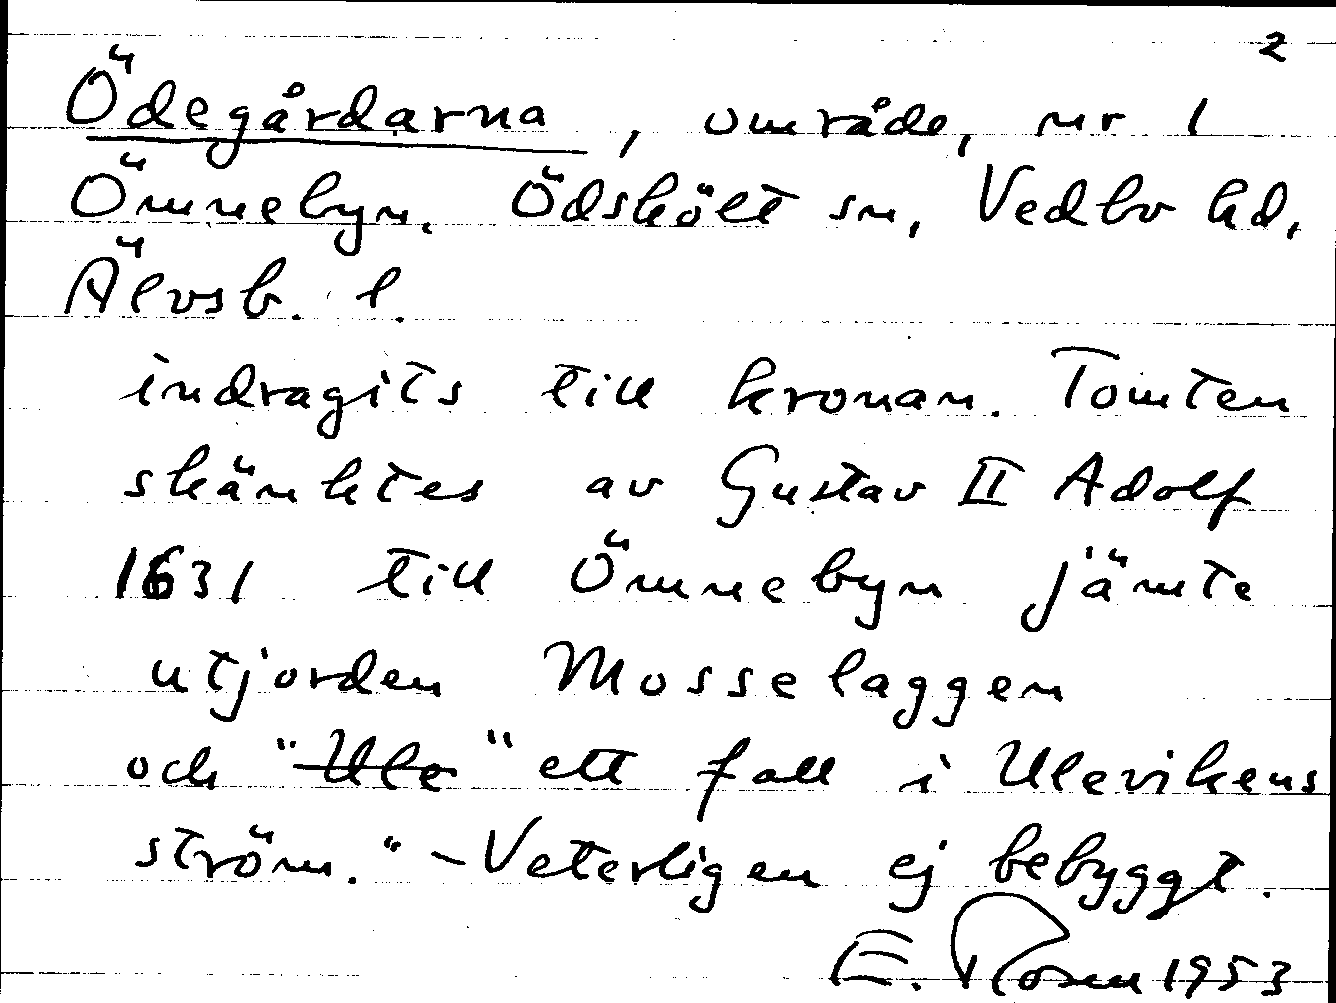 2
Ödegårdarna, område, nr 1
Ömnebyn. Ödskölt sn, Vedbo hd,
Älvsb. l.
indragits till kronan. Tomten
skänktes av Gustav II Adolf
1631 till Ömnebyn jämte
utjorden Mosselaggen
och "Ule "ett fall i Ulevikens
ström." - Veterligen ej bebyggt.
E. Rosen 1953